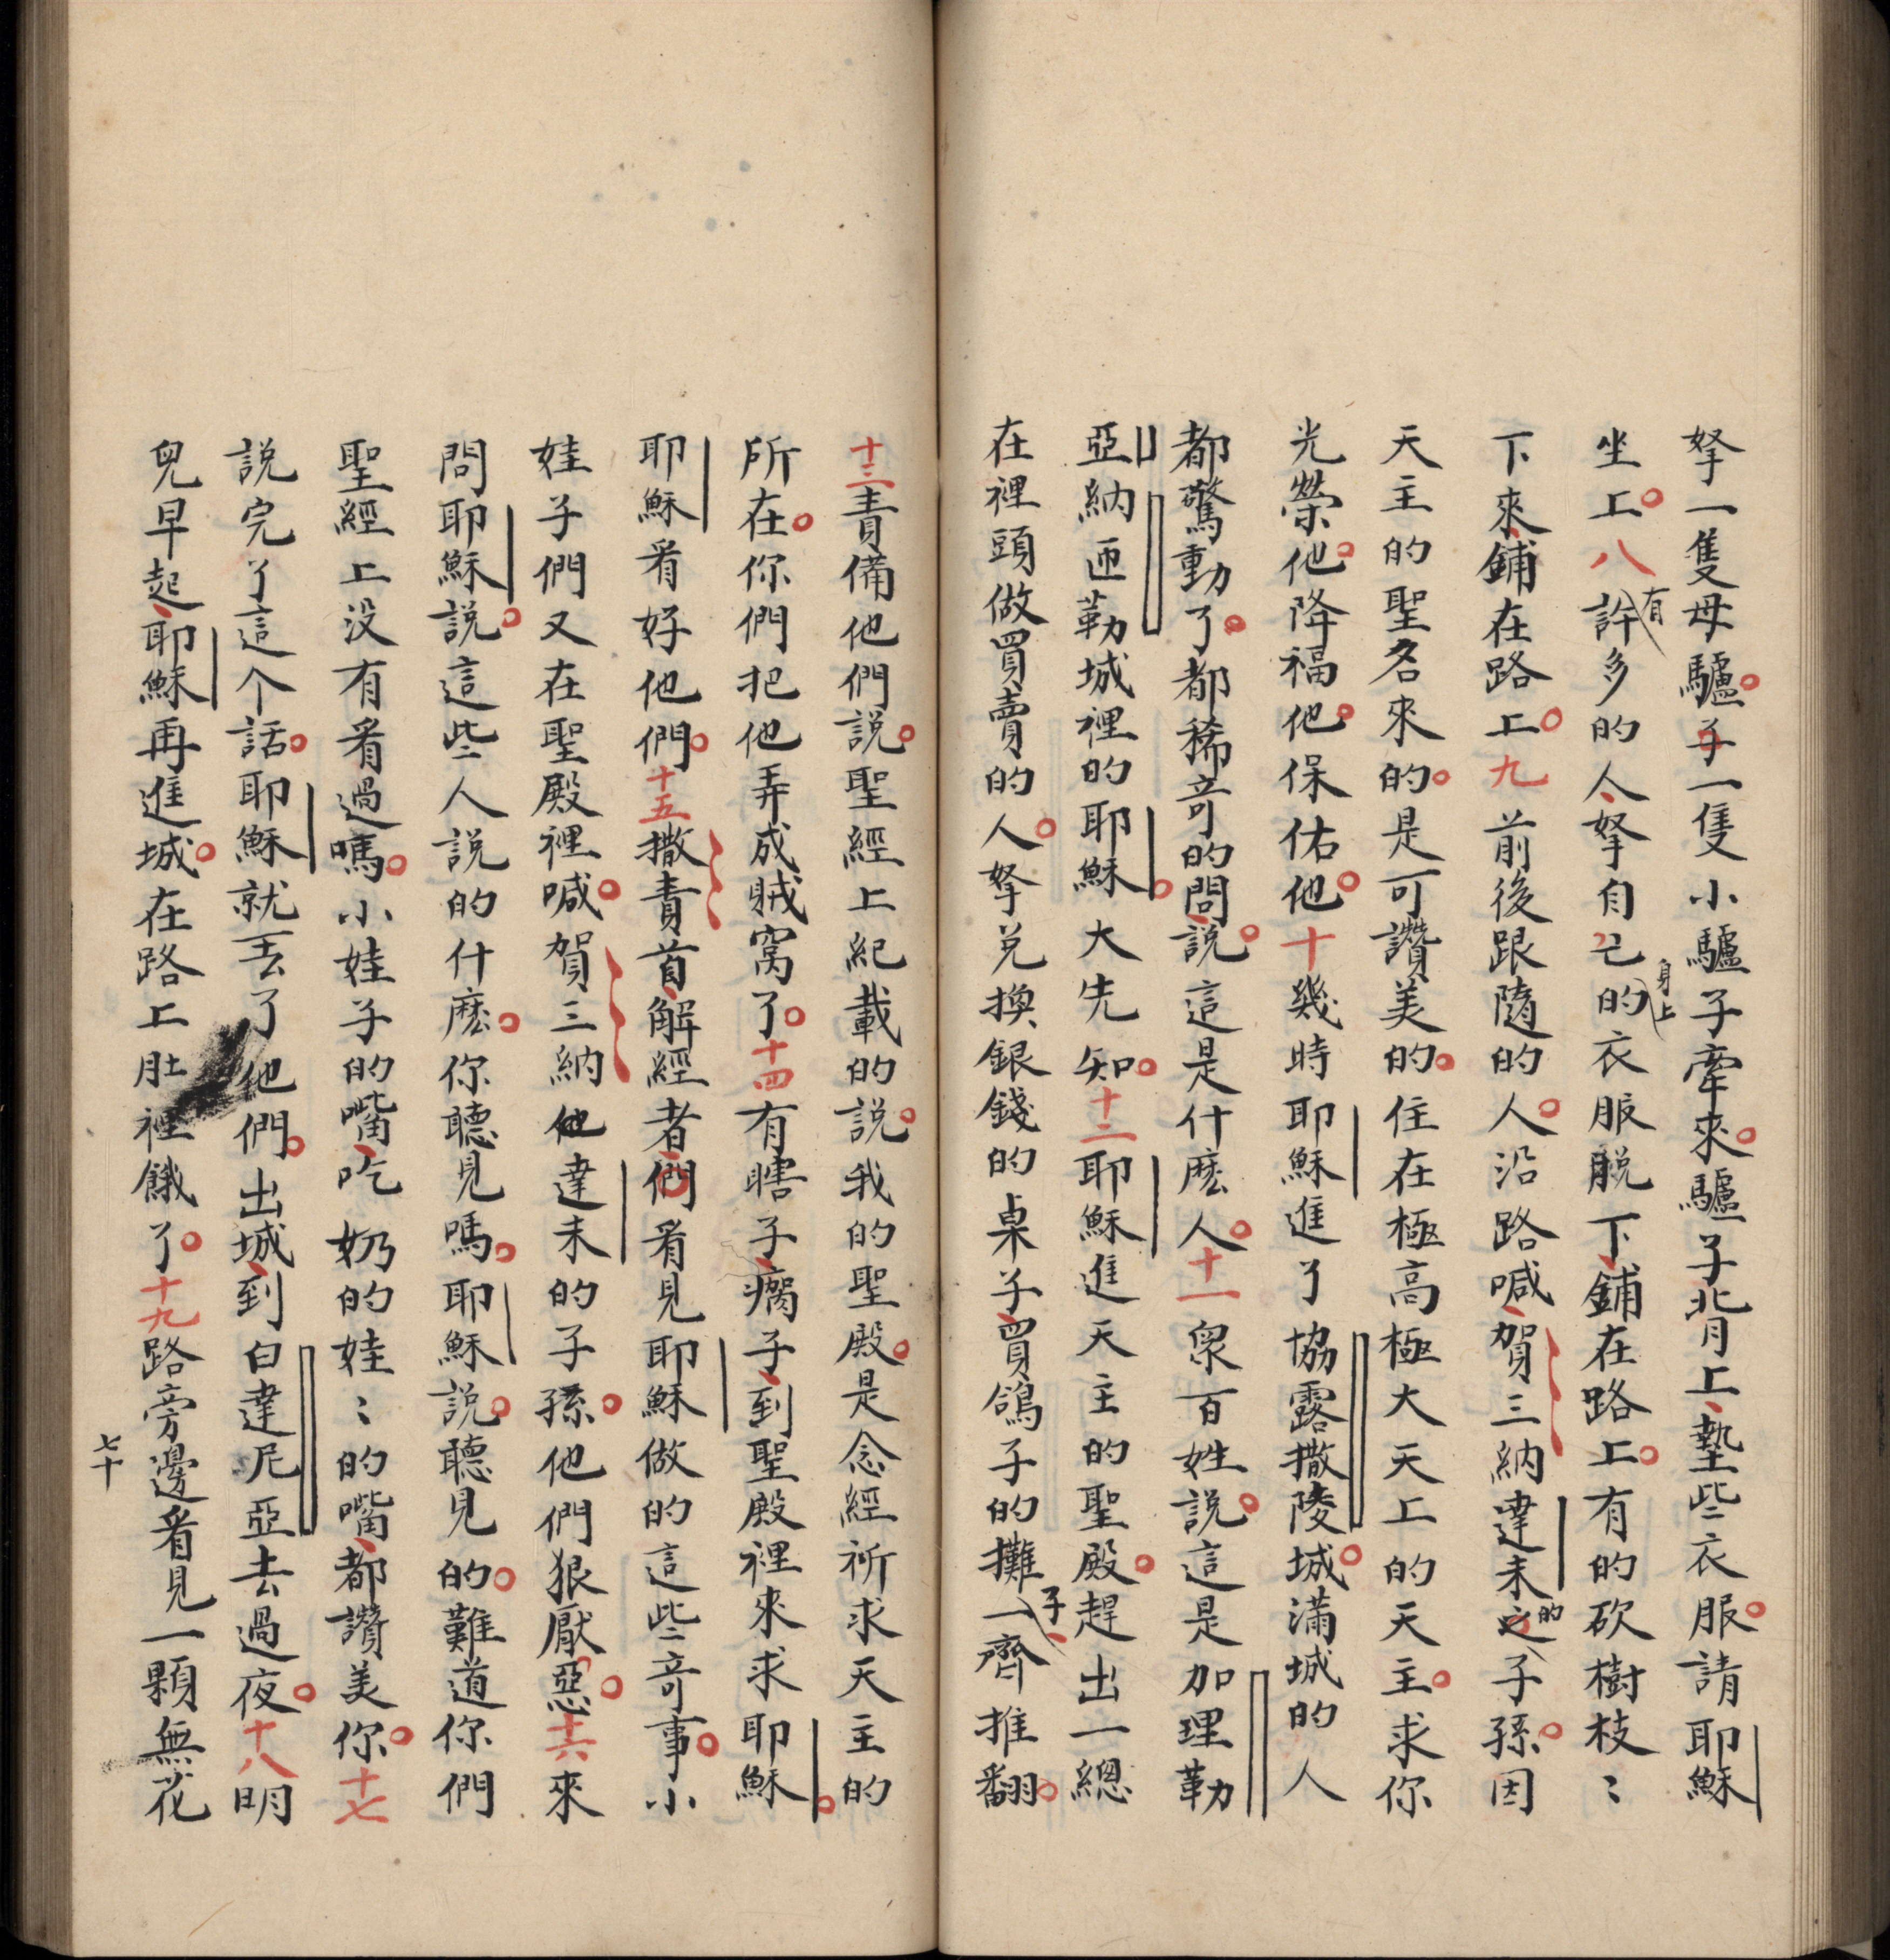 拏一隻母驢子一隻小驢子牽來。驢子背上、墊些衣服。請耶穌
坐上。八有許多的人、拏自己身上的衣服脫下、鋪在路上。有的砍樹枝〻
下來、鋪在路上。九前後跟隨的人。沿路喊、賀三納達未之的子孫。因
天主的聖名來的。是可讚美的。住在極高極大天上的天主。求你
光榮他。降福他。保佑他。十幾時耶穌進了協露撒陵城。滿城的人
都驚動了。都稀奇的問、說。這是什麽人。十一衆百姓說。這是加理勒
亞納匝勒城裡的耶穌。大先知。十二耶穌進天主的聖殿。趕出一總
在裡頭做買賣的人。拏兌換銀錢的桌子、買鴿子的攤子、一齊推翻。
十三責備他們說。聖經上紀載的說。我的聖殿。是念經祈求天主的
所在。你們把他弄成賊窩了。十四有瞎子、瘸子、到聖殿裡來求耶穌。
耶穌看好他們。十五撒責首、解經者們看見耶穌做的這些奇事。小
娃子們又在聖殿裡喊。賀三納他達未的子孫。他們狠厭惡。十六來
問耶穌說。這些人說的什麽。你聽見嗎。耶穌說。聽見的。難道你們
聖經上没有看過嗎。小娃子的嘴、吃奶的娃〻的嘴、都讚美你。十七
說完了這个話。耶穌就丟了他們。出城、到白達尼亞去過夜。十八明
兒早起、耶穌再進城。在路上肚裡餓了。十九路旁邊看見一顆無花
七十